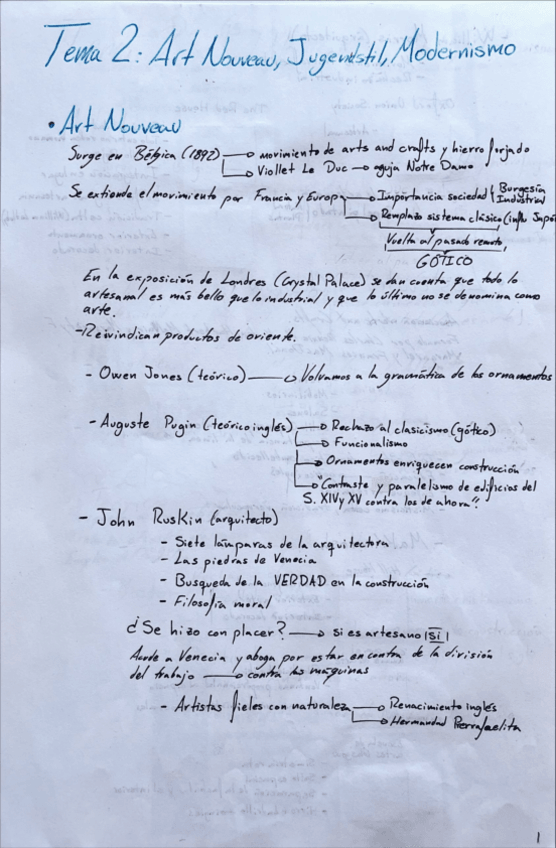 Tema 2: Art Nouveau, Jugendstil, Modernismo
• Art Nouveau
Surge en Bélgica (1892) → movimiento de arts and crafts y hierro forjado
→ Viollet Le Duc → aguja Notre Dame
Se extiende el movimiento por Francia y Europa → Importancia sociedad { Burgesía
Industrial
→ Remplazo sistema clásico (influ Japó
Vuelta al pasado remoto
GÓTICO
En la exposición de Londres (Crystal Palace) se dan cuenta que todo lo
artesanal es más bello que lo industrial y que lo último no se denomina como
arte.
- Reivindican productos de oriente.
- Owen Jones (teórico) → Volvamos a la gramática de los ornamentos
- Auguste Pugin (teórico inglés) → Rechazo al clasicismo (gótico)
→ Funcionalismo
→ Ornamentos enriquecen construcción
→ "Contraste y paralelismo de edificios del
S. XIV y XV contra los de ahora"
- John Ruskin (arquitecto)
- Siete lámparas de la arquitectura
- Las piedras de Venecia
- Busqueda de la VERDAD en la construcción
- Filosofia moral
¿Se hizo con placer? → si es artesano ¡SÍ!
Acude a Venecia y aboga por estar en contra de la división
del trabajo → contra las máquinas
- Artistas fieles con naturaleza → Renacimiento inglés
→ Hermandad Perrafaelita
1